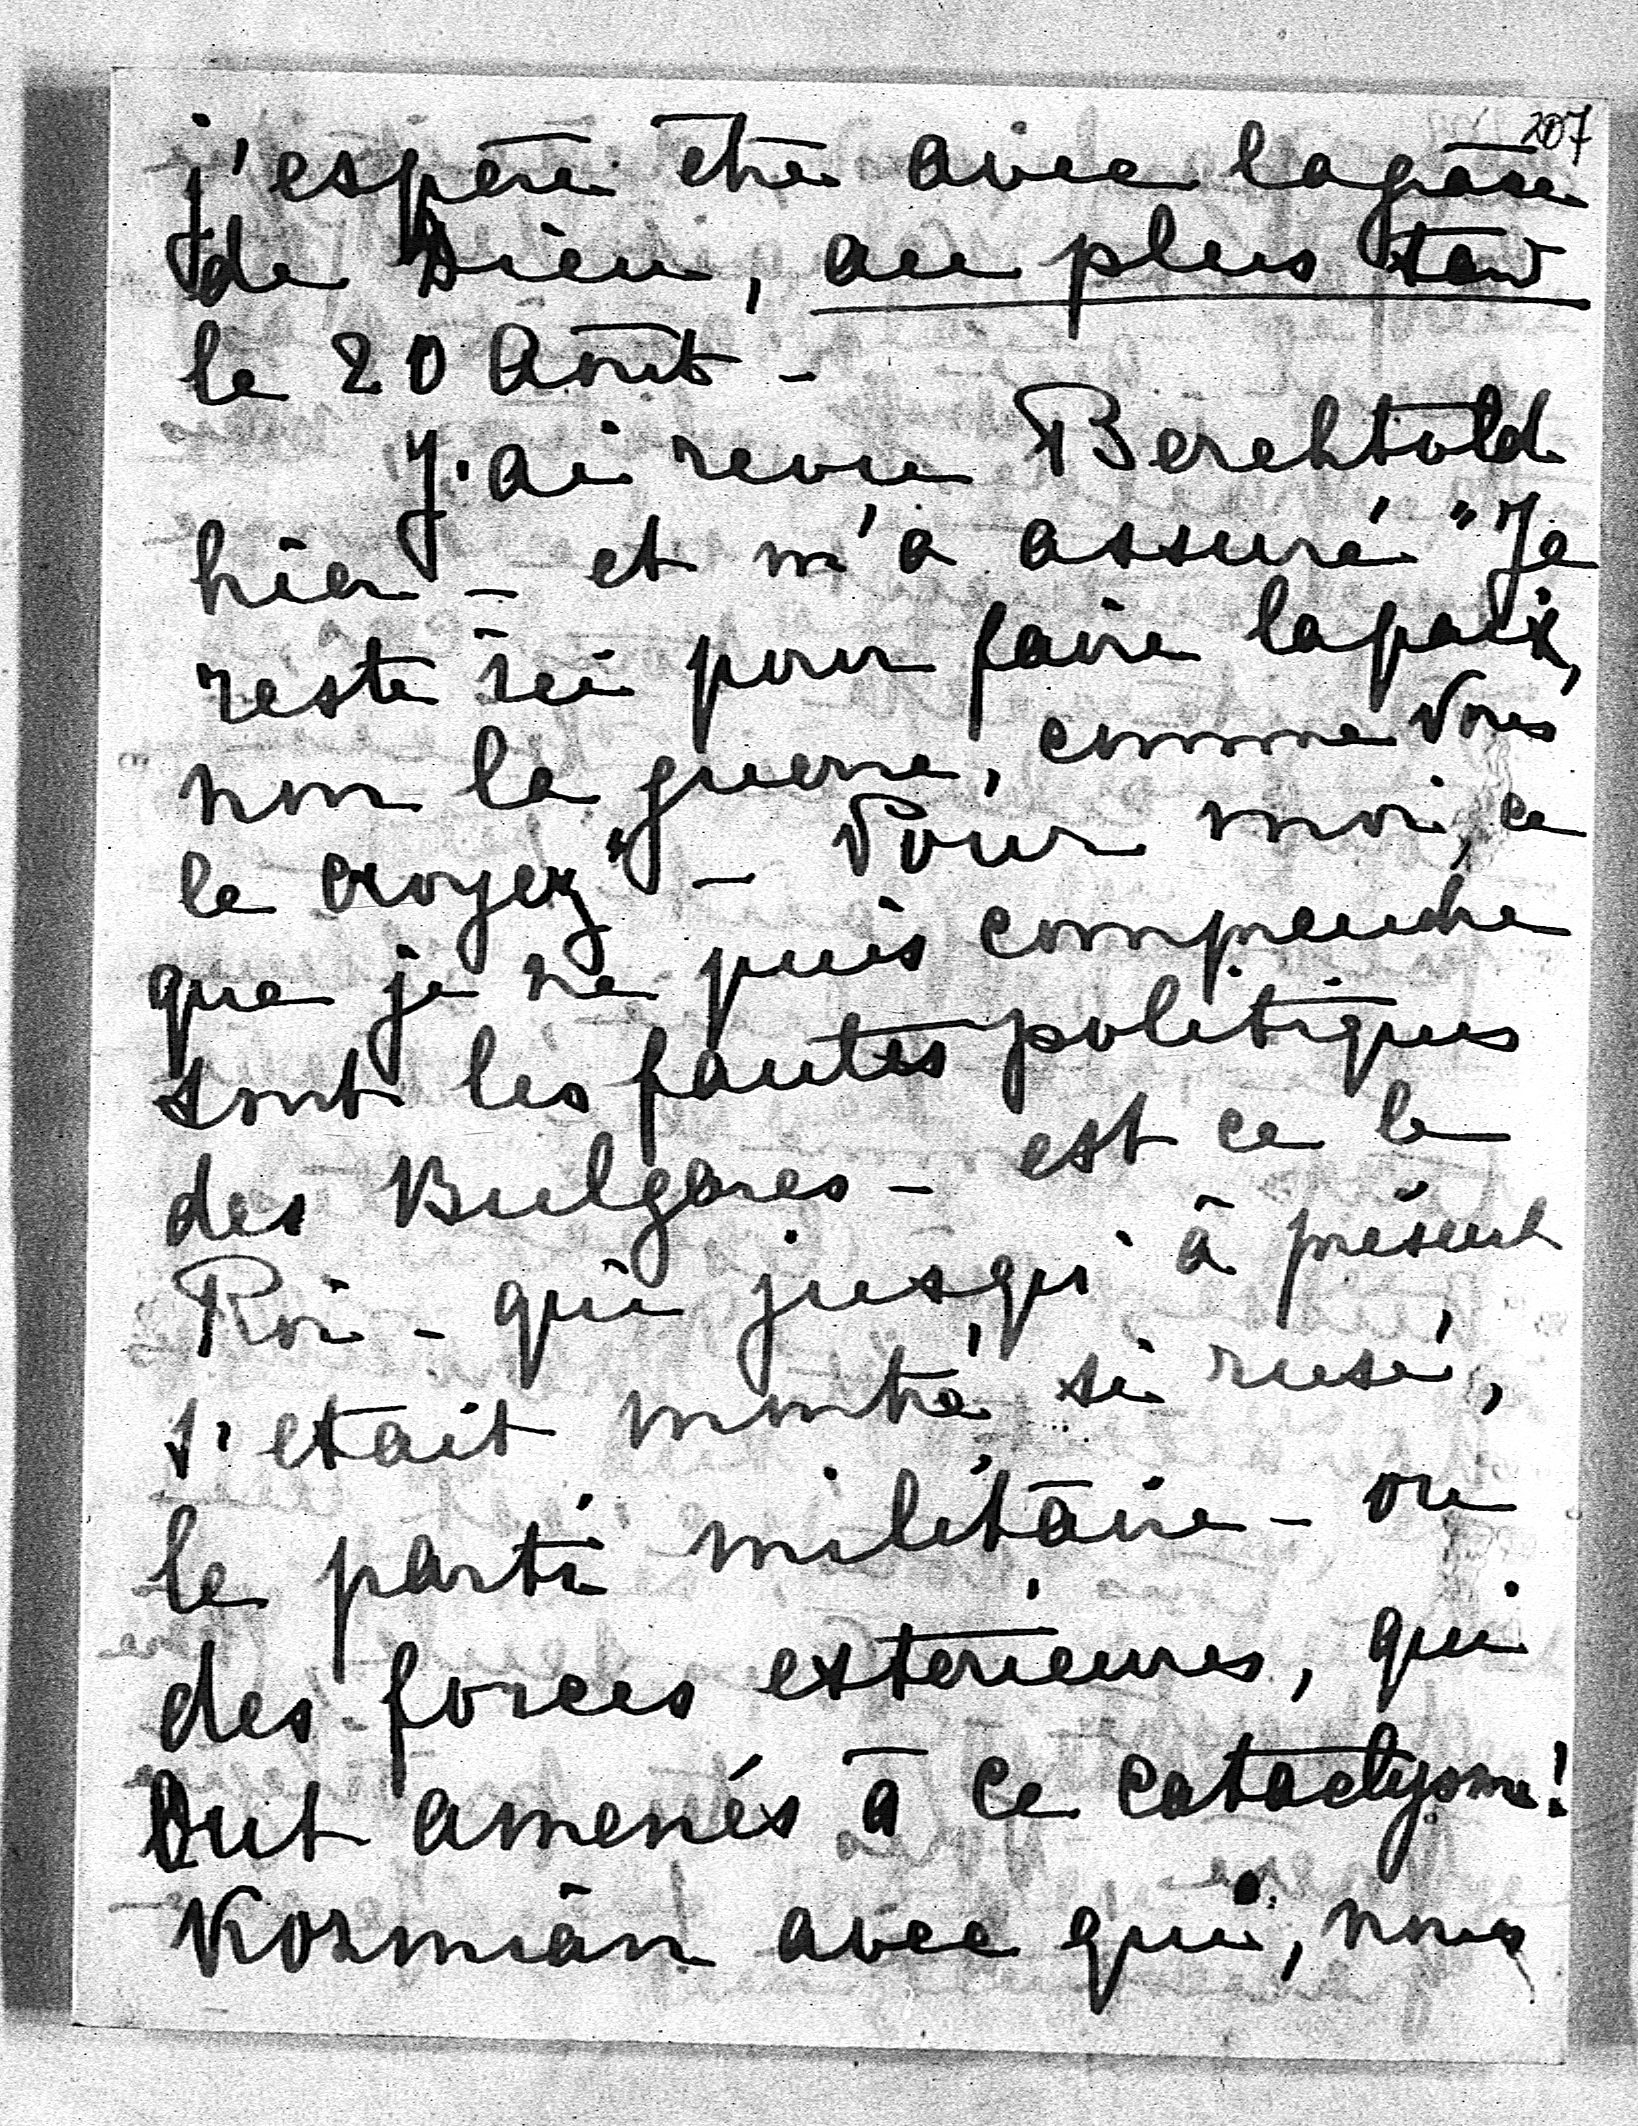 207
j'espère être avec la grâce
de Dieu, au plus tard
le 20 Août -
J'ai revu Berchtold
hier - et m'a assuré "Je
reste ici pour faire la paix,
non la guerre, comme Vous
le croyez" - Pour moi, ce
que je ne puis comprendre
sont les fautes politiques
des Bulgares - est ce le
Roi - qui jusqu'à présent
s'était montré, si rusé,
le parti militaire - ou
des forces extérieures, qui
Ont amenés à ce cataclysme!
Kosmian avec qui, nous